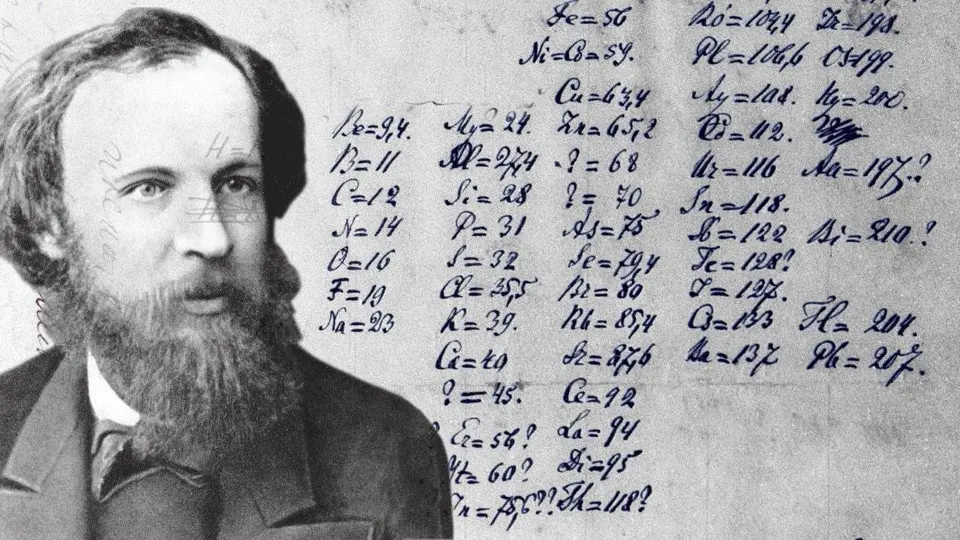 Fe=56 Ro=104,4 Ir=198.
Ni=Co=59. Pl=106,6 Os=199.
Cu=63,4 Ag=108. Hg=200.
Be=9,4. Mg=24. Zn=65,2 Cd=112.
B=11 Al=27,4 ?=68 Ur=116 Au=197?
C=12 Si=28 ?=70 Sn=118.
N=14 P=31 As=75 Sb=122 Bi=210?
O=16 S=32 Se=79,4 Te=128?
F=19 Cl=35,5 Br=80 J=127.
Na=23 K=39. Rb=85,4 Cs=133 Tl=204.
Ca=40 Sr=87,6 Ba=137 Pb=207.
?=45. Ce=92
Er=56? La=94
Yt=60? Di=95
In=75,6?? Th=118?